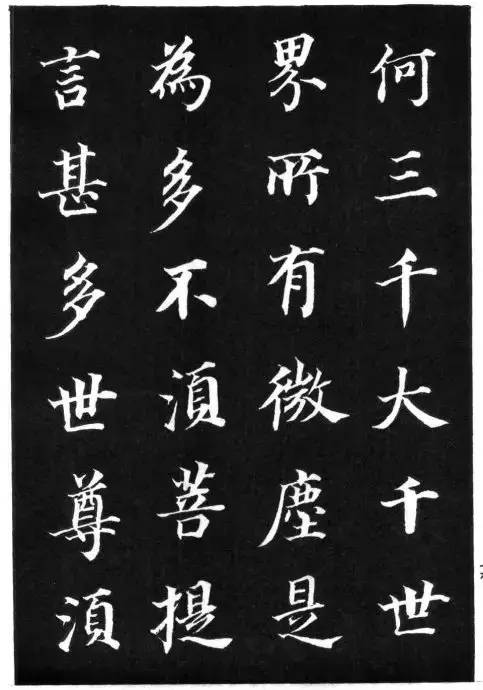 何三千大千世
界所有微塵是
為多不須菩提
言甚多世尊須